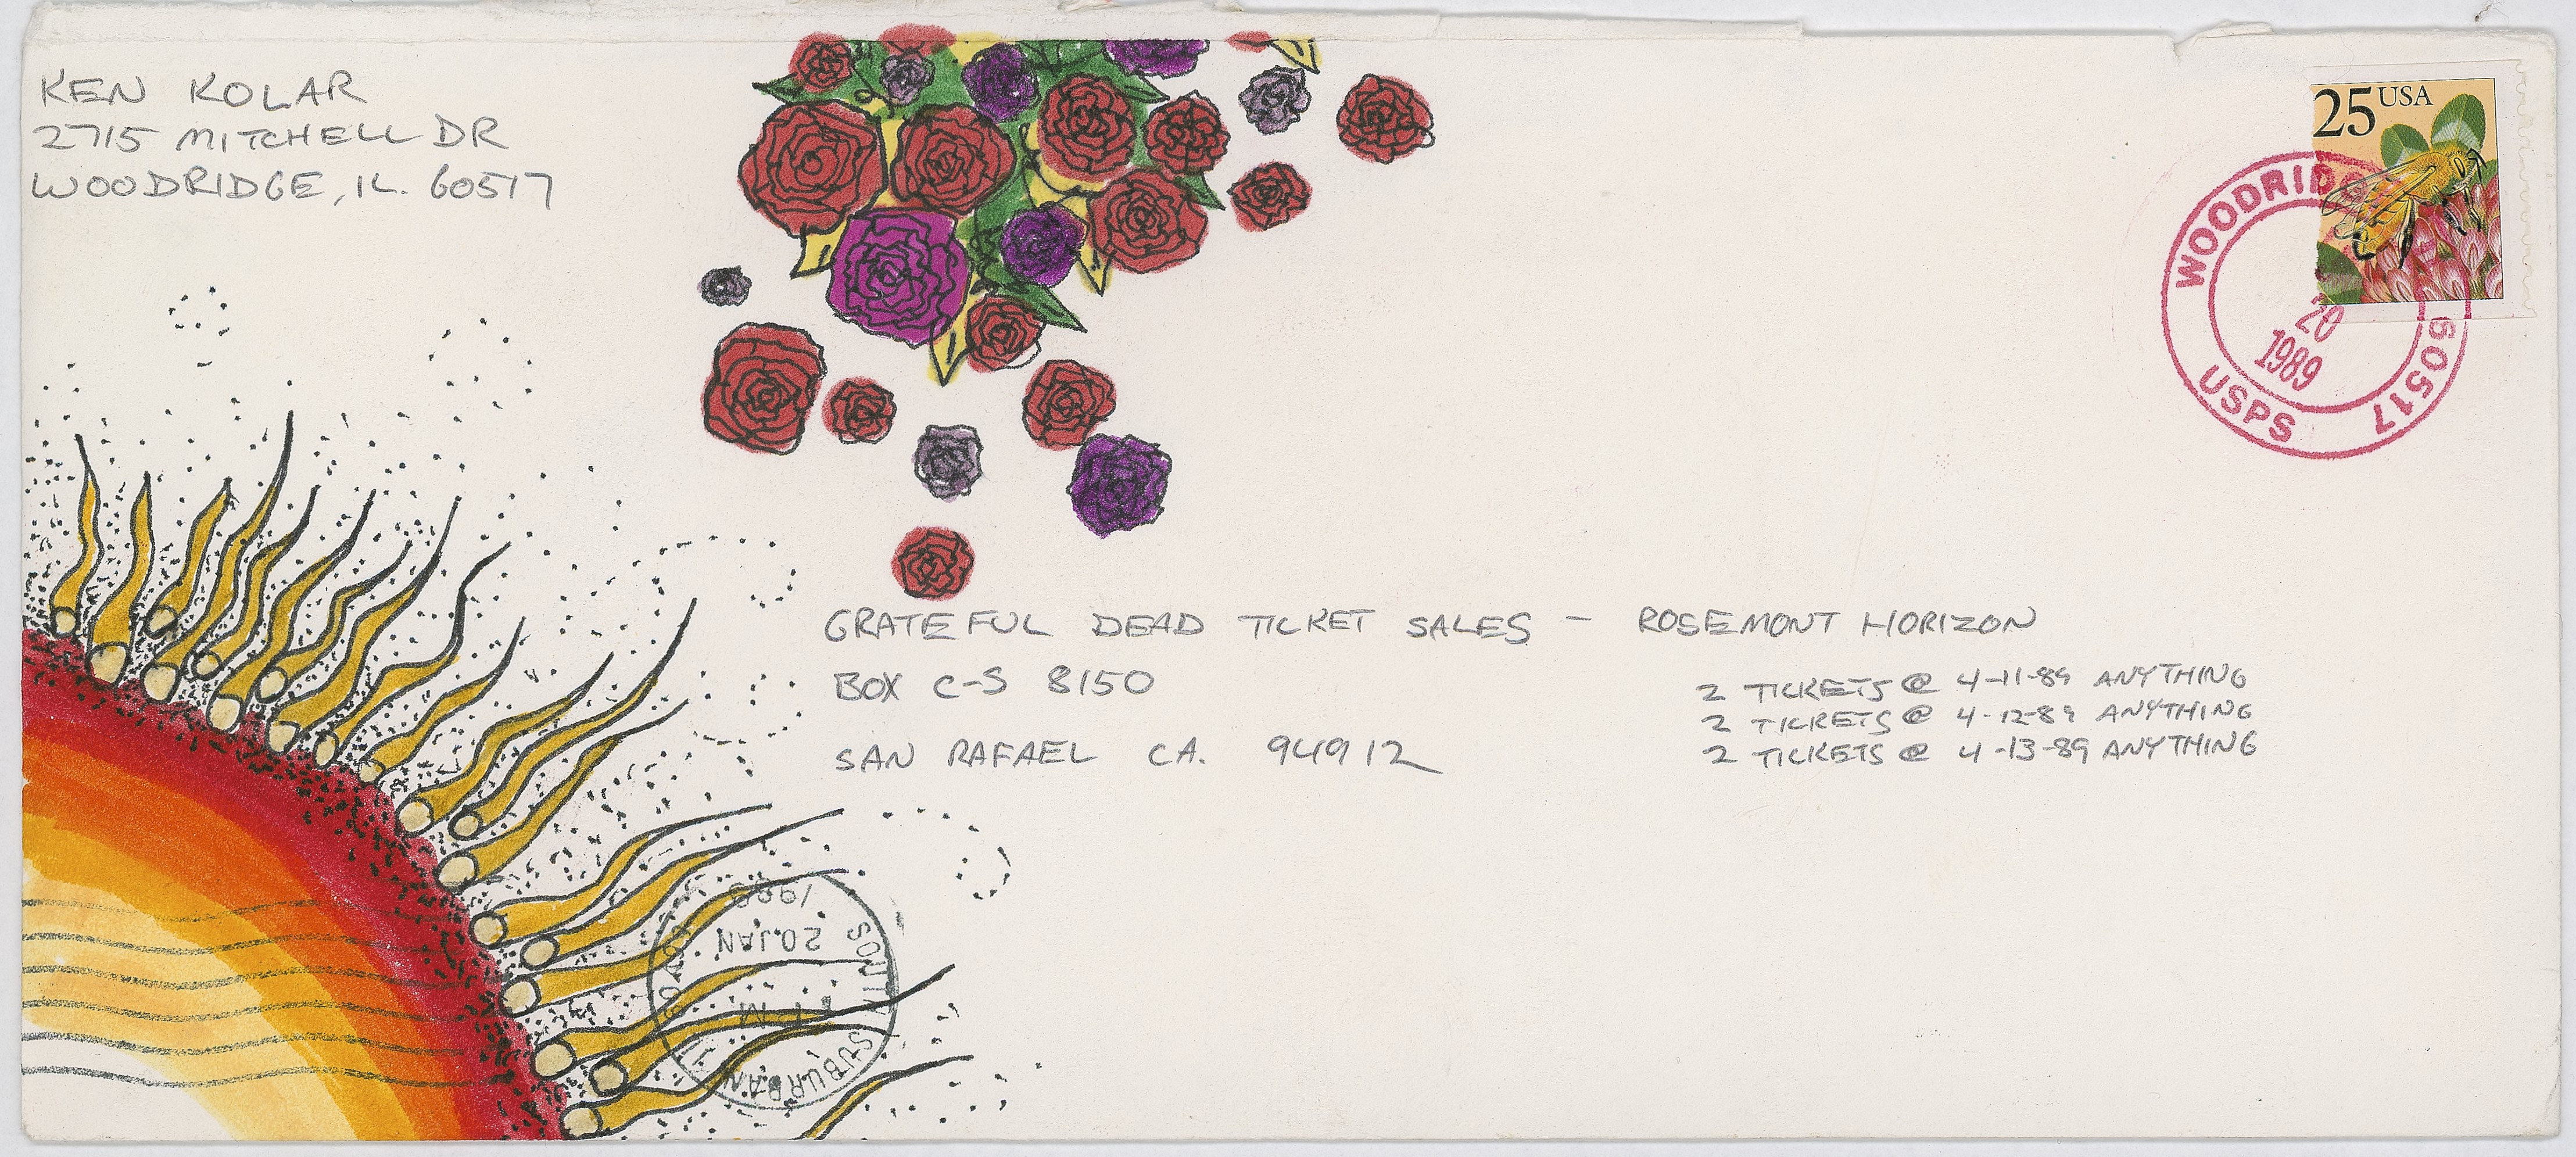 KEN KOLAR
2715 MITCHELL DR
WOODRIDGE, IL. 60517
25 USA
WOODRIDGE 60517
20
1989
USPS
GRATEFUL DEAD TICKET SALES - ROSEMONT HORIZON
BOX C-S 8150
SAN RAFAEL CA. 94912
2 TICKETS @ 4-11-89 ANYTHING
2 TICKETS @ 4-12-89 ANYTHING
2 TICKETS @ 4-13-89 ANYTHING
SOUTH SUBURBAN
PM
20 JAN
1989